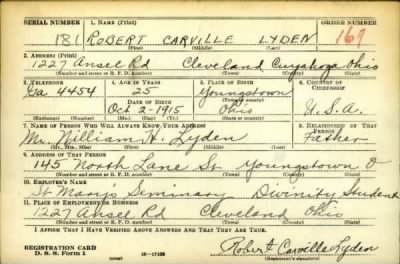 SERIAL NUMBER 1. NAME (Print) ORDER NUMBER
181 ROBERT CARVILLE LYDEN 169
(First) (Middle) (Last)
2. ADDRESS (Print)
1227 Ansel Rd Cleveland Cuyahoga Ohio
(Number and street or R. F. D. number) (Town) (County) (State)
3. TELEPHONE 4. AGE IN YEARS 5. PLACE OF BIRTH 6. COUNTRY OF CITIZENSHIP
Ga 4454 25 Youngstown
DATE OF BIRTH (Town or county)
Oct 2 - 1915 Ohio U.S.A.
(Exchange) (Number) (Mo.) (Day) (Yr.) (State or country)
7. NAME OF PERSON WHO WILL ALWAYS KNOW YOUR ADDRESS 8. RELATIONSHIP OF THAT PERSON
Mr. William H. Lyden Father
(Mr., Mrs., Miss) (First) (Middle) (Last)
9. ADDRESS OF THAT PERSON
145 North Lane St Youngstown O
(Number and street or R. F. D. number) (Town) (County) (State)
10. EMPLOYER'S NAME
St Marys Seminary Divinity Student
11. PLACE OF EMPLOYMENT OR BUSINESS
1227 Ansel Rd Cleveland Ohio
(Number and street or R. F. D. number) (Town) (County) (State)
I AFFIRM THAT I HAVE VERIFIED ABOVE ANSWERS AND THAT THEY ARE TRUE.
REGISTRATION CARD
D. S. S. Form 1 (over) Robert Carville Lyden
(Registrant's signature)